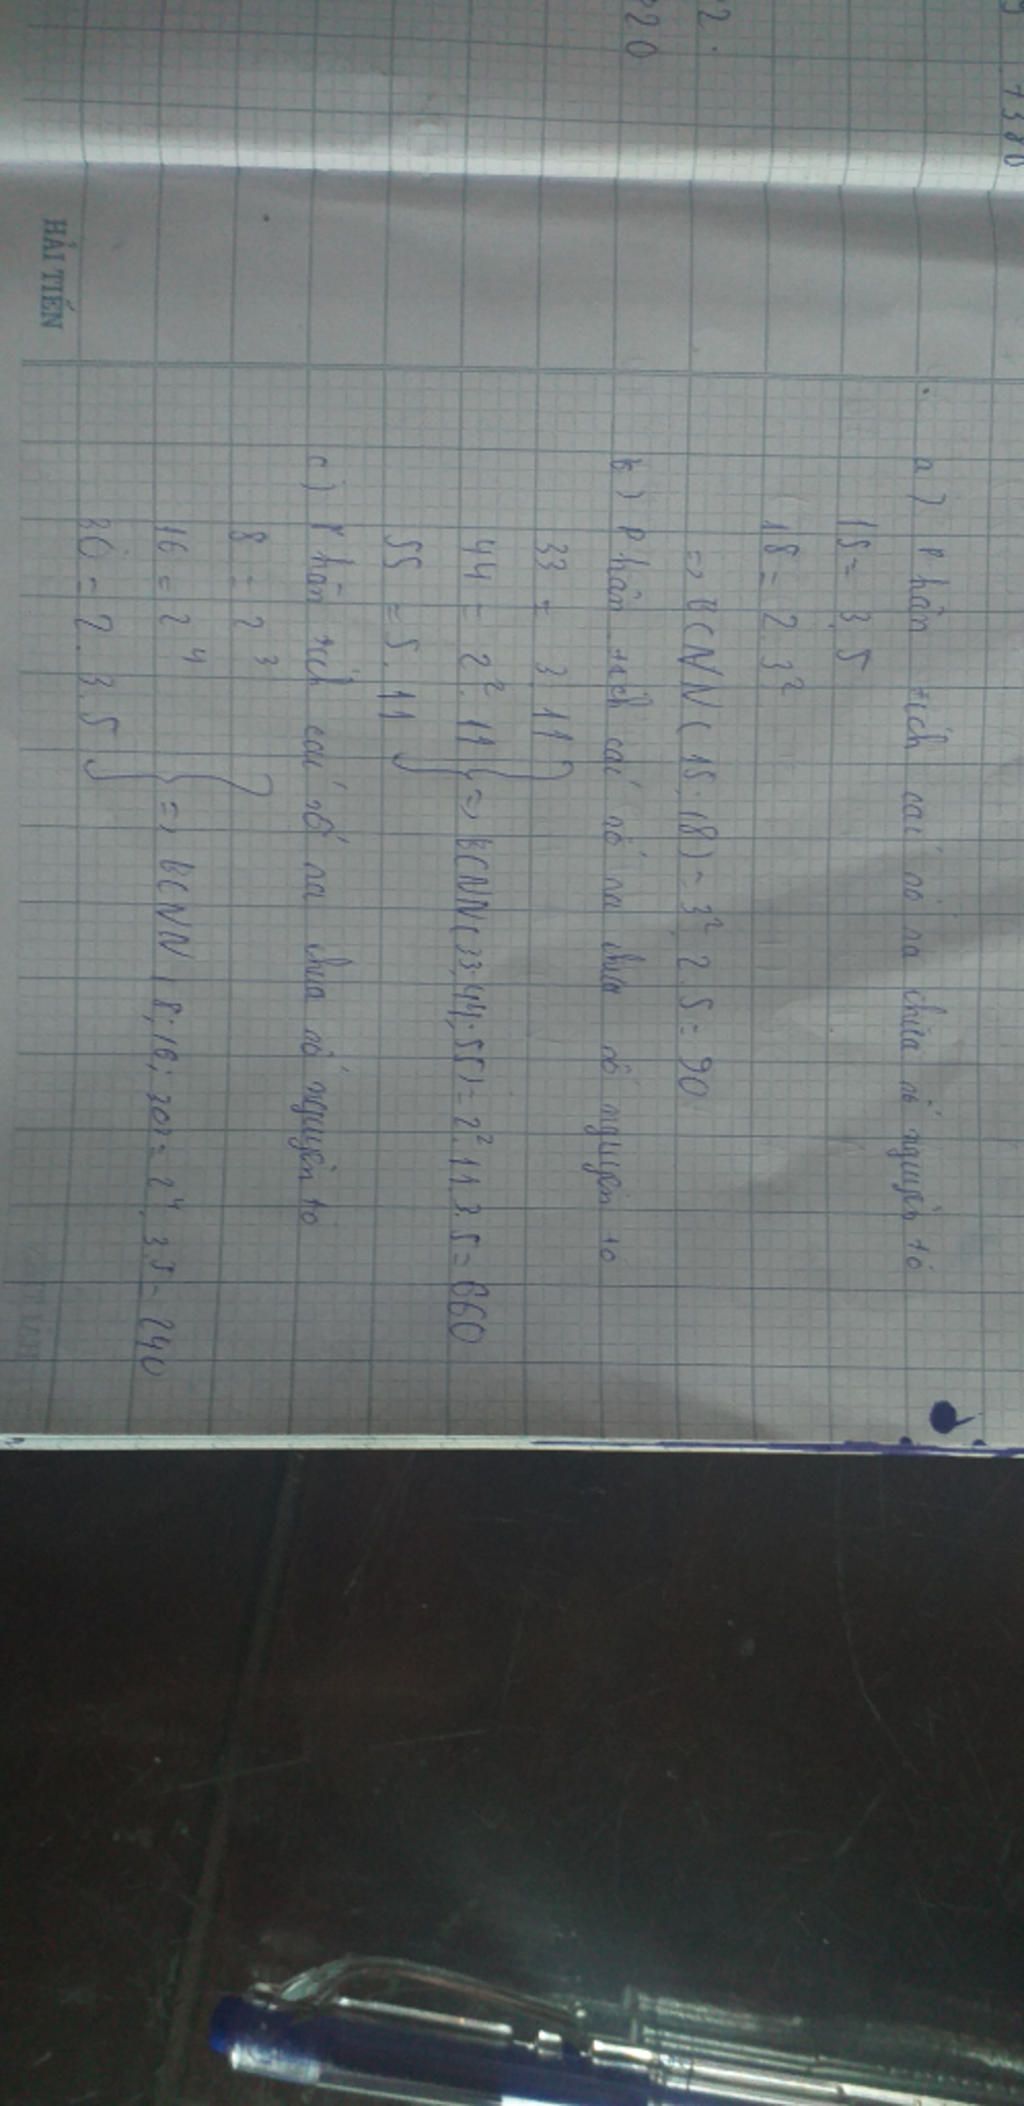 7380
22.
220
a) Phân tích các số ra thừa số nguyên tố
15 = 3.5
18 = 2.3²
=> BCNN(15;18) = 3².2.5 = 90
b) Phân tích các số ra thừa số nguyên tố
33 = 3.11
44 = 2².11 } => BCNN(33;44;55) = 2².11.3.5 = 660
55 = 5.11
c) Phân tích các số ra thừa số nguyên tố
8 = 2³
16 = 2⁴ } => BCNN(8;16;30) = 2⁴.3.5 = 240
30 = 2.3.5
HẢI TIẾN